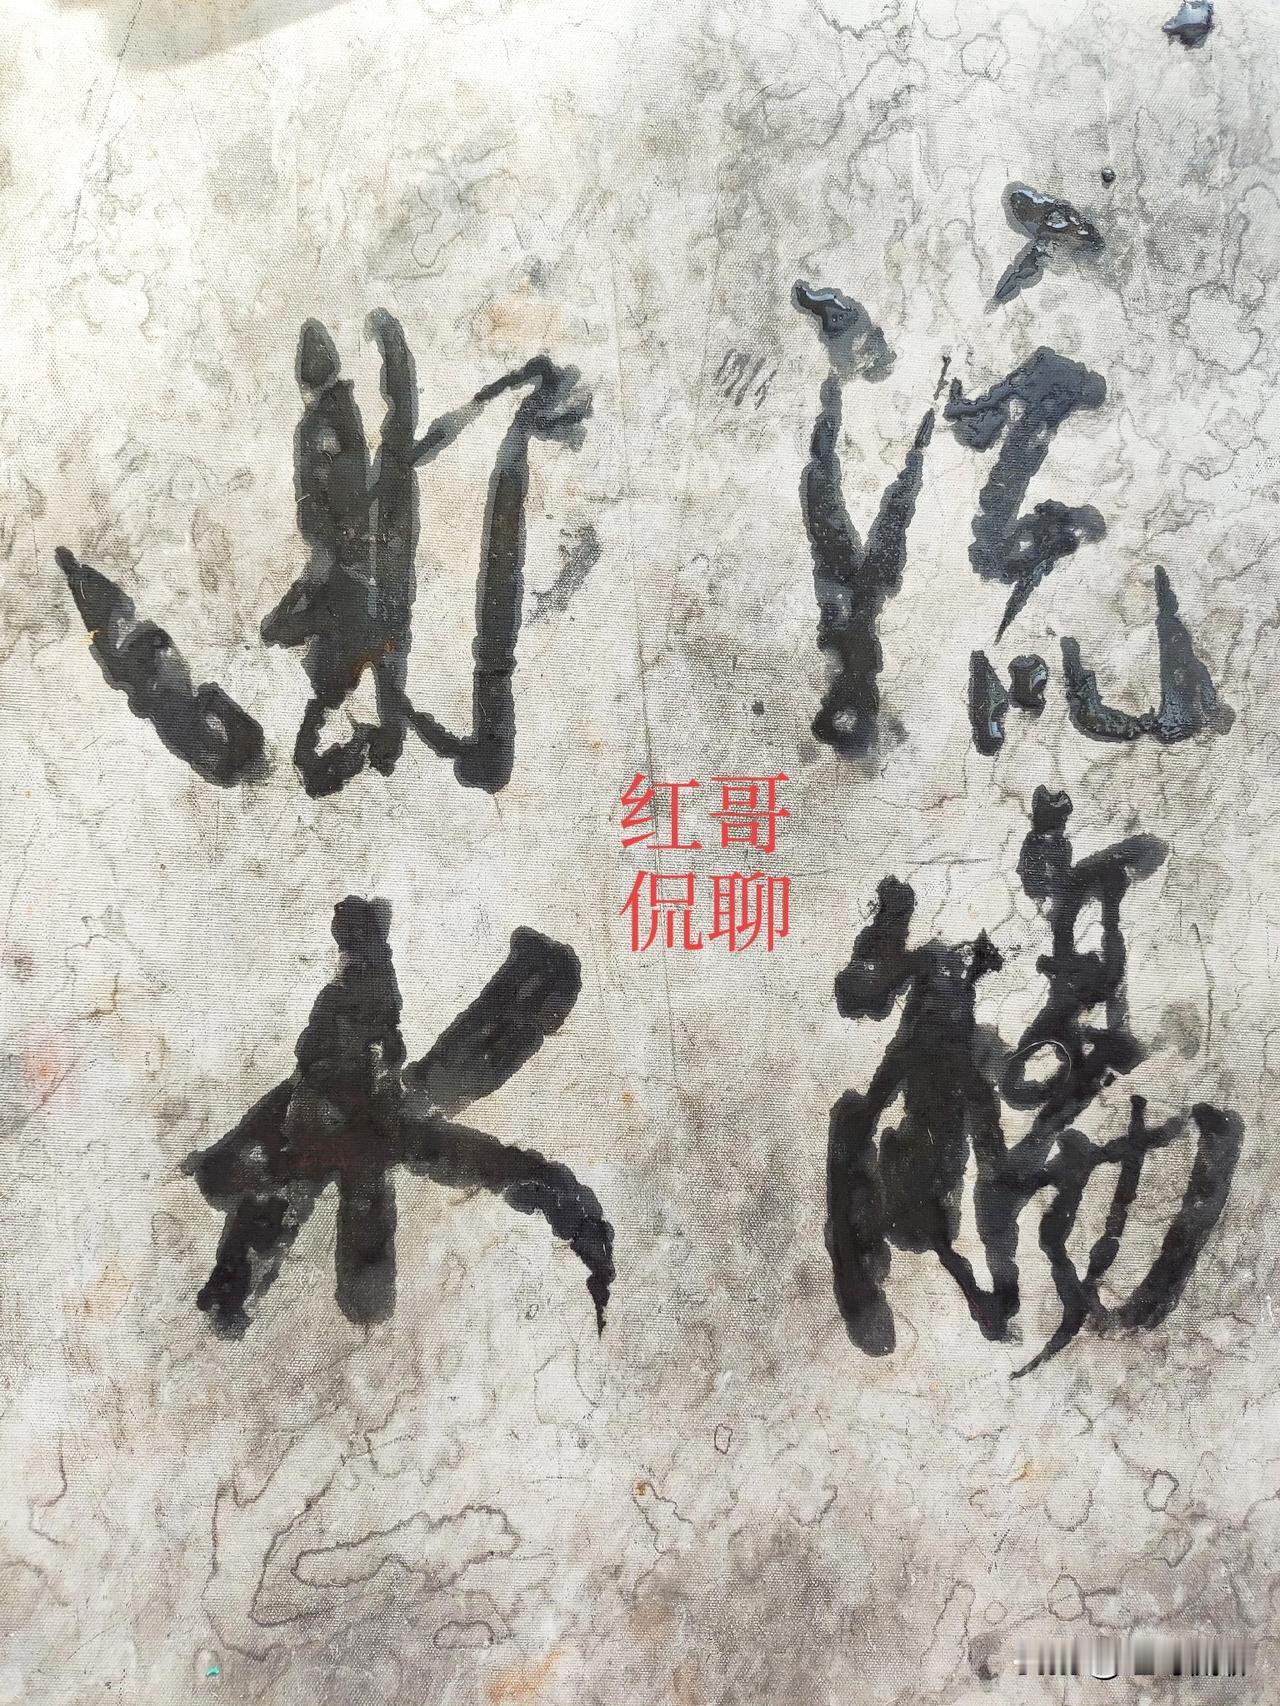 流觴
曲水
红哥
侃聊